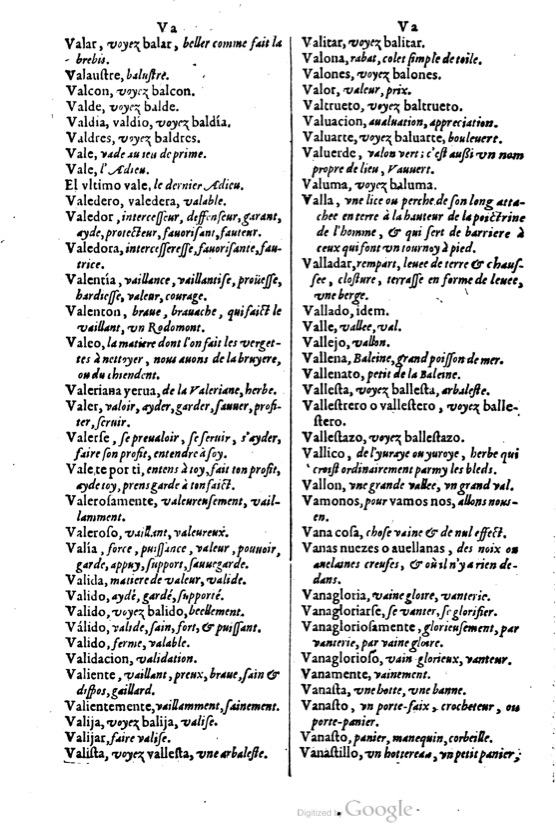 Va
Valar, voyez balar, beller comme fait la
brebis.
Valaustre, balustre.
Valcon, voyez balcon.
Valde, voyez balde.
Valdia, valdio, voyez baldía.
Valdres, voyez baldres.
Vale, vade au ieu de prime.
Vale, l'Adieu.
El vltimo vale, le dernier Adieu.
Valedero, valedera, valable.
Valedor, intercesseur, deffenseur, garant,
ayde, protecteur, fauorisant, fauteur.
Valedora, intercesseresse, fauorisante, fau-
trice.
Valentía, vaillance, vaillantise, proüesse,
hardiesse, valeur, courage.
Valenton, braue, brauache, qui faict le
vaillant, vn Rodomont.
Valeo, la matiere dont l'on fait les verget-
tes à nettoyer, nous auons de la bruyere,
ou du chiendent.
Valeriana yerua, de la Valeriane, herbe.
Valer, valoir, ayder, garder, sauuer, profi-
ter, seruir.
Valerse, se preualoir, se seruir, s'ayder,
faire son profit, entendre à soy.
Vale, te por ti, entens à toy, fait ton profit,
ayde toy, prens garde à ton faict.
Valerosamente, valeureusement, vail-
lamment.
Valeroso, vaillant, valeureux.
Valía, force, puissance, valeur, pouuoir,
garde, appuy, support, sauuegarde.
Valida, matiere de valeur, valide.
Valido, aydé, gardé, supporté.
Valido, voyez balido, beellement.
Válido, valide, sain, fort, & puissant.
Valido, ferme, valable.
Validacion, validation.
Valiente, vaillant, preux, braue, sain &
dispos, gaillard.
Valientemente, vaillamment, sainement.
Valija, voyez balija, valise.
Valijar, faire valise.
Valista, voyez vallesta, vne arbaleste.
Va
Valitar, voyez balitar.
Valona, rabat, colet simple de toile.
Valones, voyez balones.
Valor, valeur, prix.
Valtrueto, voyez baltrueto.
Valuacion, aualuation, appreciation.
Valuarte, voyez baluarte, bouleuert.
Valuerde, valon vert: c'est aussi vn nom
propre de lieu, Vauuert.
Valuma, voyez baluma.
Valla, vne lice ou perche de son long atta-
chee en terre à la hauteur de la poictrine
de l'homme, & qui sert de barriere à
ceux qui font vn tournoy à pied.
Valladar, rempart, leuee de terre & chauf-
see, closture, terrasse en forme de leuee,
vne berge.
Vallado, idem.
Valle, vallee, val.
Vallejo, vallon.
Vallena, Baleine, grand poisson de mer.
Vallenato, petit de la Baleine.
Vallesta, voyez ballesta, arbaleste.
Vallestrero o vallestero, voyez balle-
stero.
Vallestazo, voyez ballestazo.
Vallico, de l'yuraye ou yuroye, herbe qui
croist ordinairement parmy les bleds.
Vallon, vne grande vallee, vn grand val.
Vamonos, pour vamos nos, allons nous-
en.
Vana cosa, chose vaine & de nul effect.
Vanas nuezes o auellanas, des noix ou
auelanes creuses, & où il n'y a rien de-
dans.
Vanagloria, vaine gloire, vanterie.
Vanagloriarse, se vanter, se glorifier.
Vanagloriosamente, glorieusement, par
vanterie, par vaine gloire.
Vanaglorioso, vain-glorieux, vanteur.
Vanamente, vainement.
Vanasta, vne hotte, vne banne.
Vanasto, vn porte-faix, crocheteur, ou
porte-panier.
Vanasto, panier, manequin, corbeille.
Vanastillo, vn hottereau, vn petit panier;
Digitized by Google